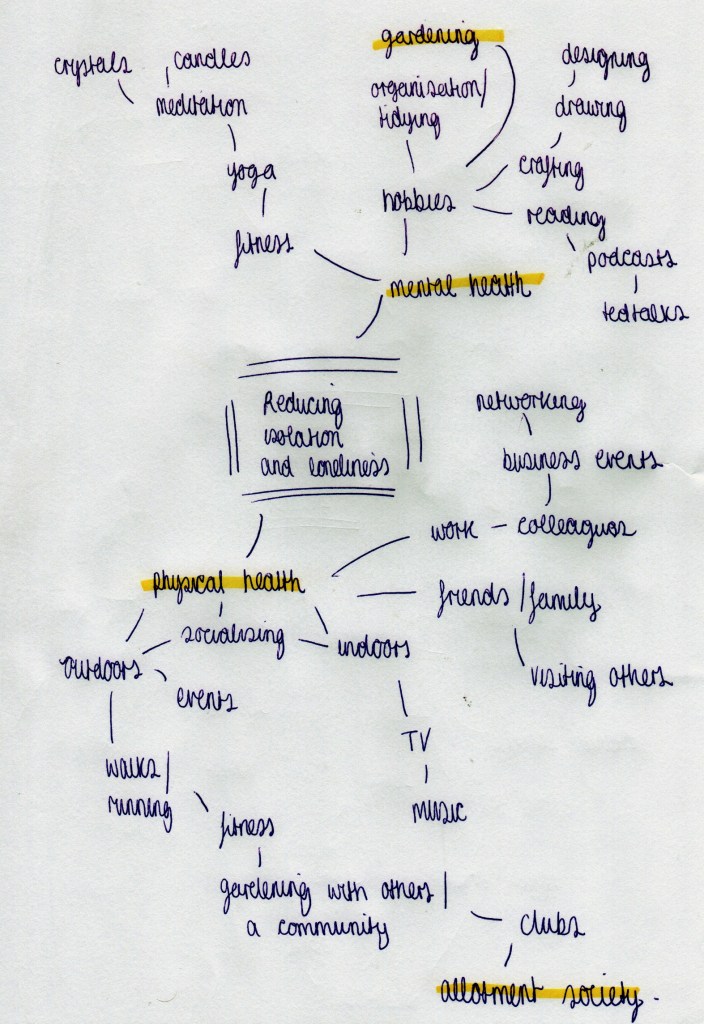 gardening
crystals
candles
designing
organisation/
tidying
meditation
drawing
yoga
crafting
hobbies
reading
fitness
podcasts
mental health
tedtalks
Reducing
isolation
and loneliness
networking
business events
work
colleagues
physical health
friends/family
socialising
indoors
outdoors
visiting others
events
TV
walks/
running
music
fitness
gardening with others/
a community
clubs
allotment society.